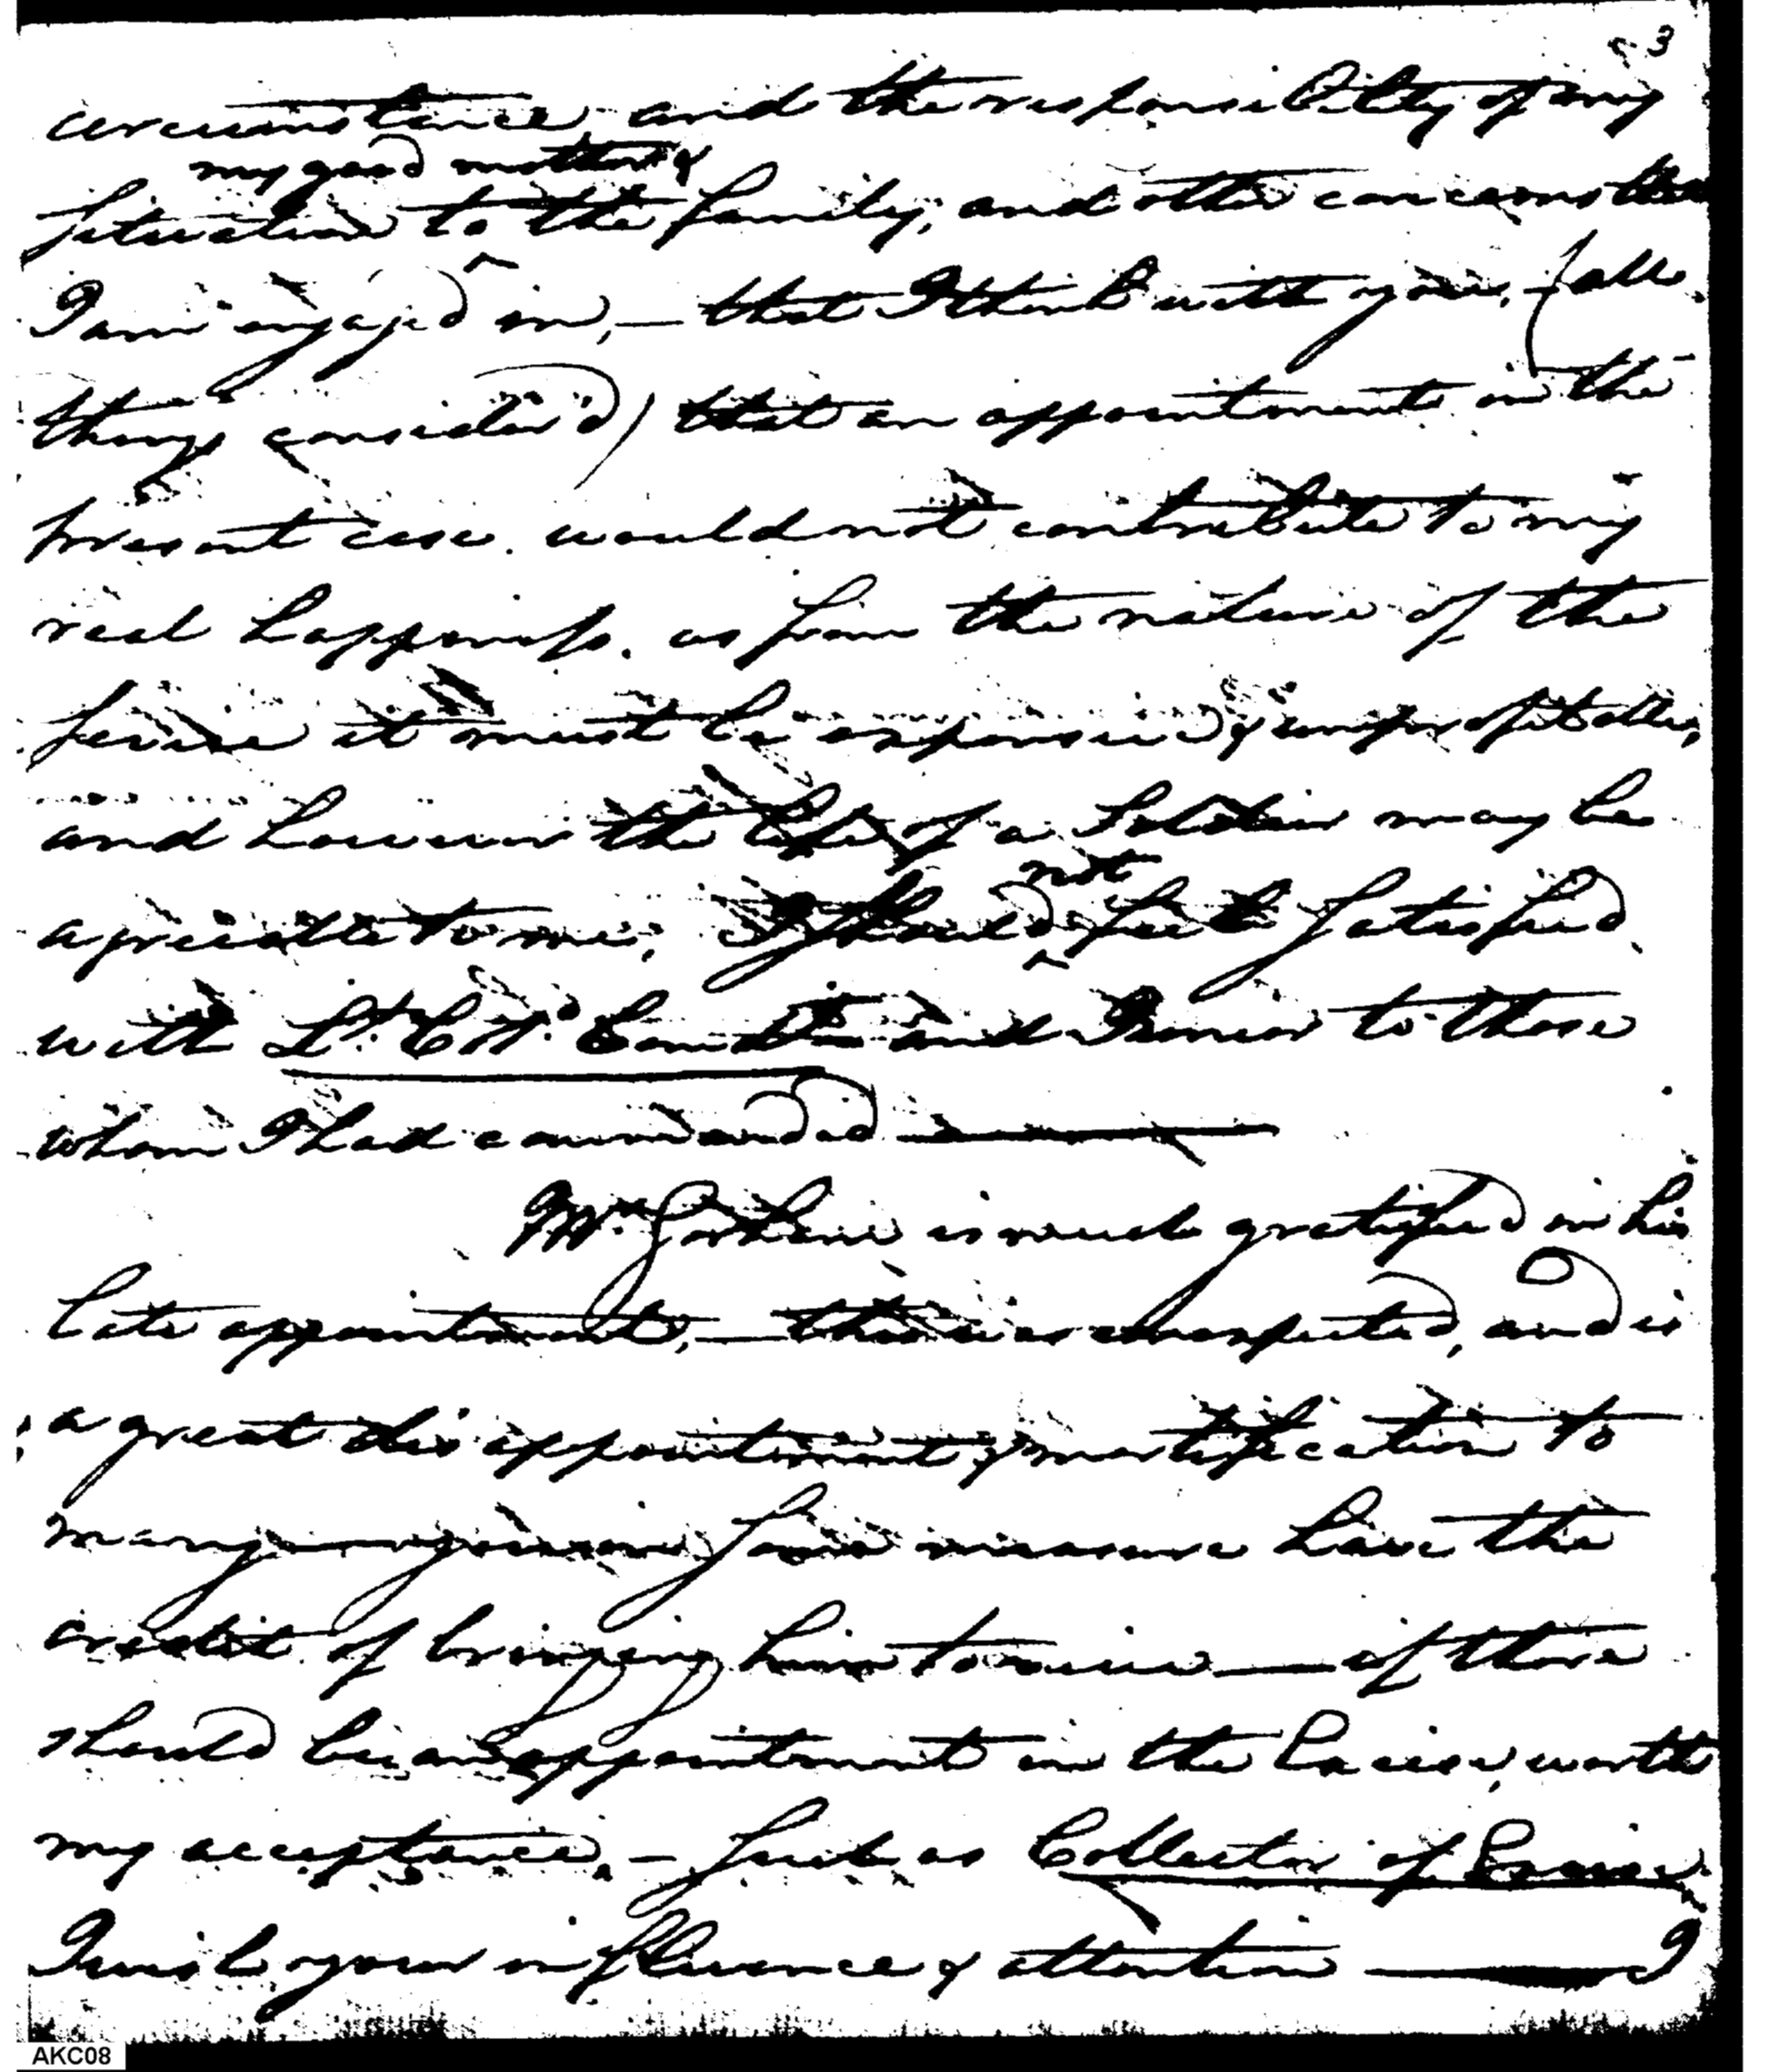 3
circumstance, and the responsibility of my
my good mother &
situation to the family, and other concerns that
I am engaged in, — that I think with you, (all
things consider'd) that an appointment in the
present case. would not contribute to my
real happiness. as from the nature of the
service it must be expensive & unprofitable,
and however the life of a Soldier may be
agreeable to me, I should feel satisfied
not
with Lt. Col. and Junior to those
whom I had commanded —
Mr. Gorham is much gratified in his
late appointment, — this was unexpected, and is
a great disappointment & mortification to
many — you in some measure have the
credit of bringing him to view — if there
should be an appointment in the Excise, worth
my acceptance, — such as Collector of Excise
I wish your influence & attention — I
AKC08